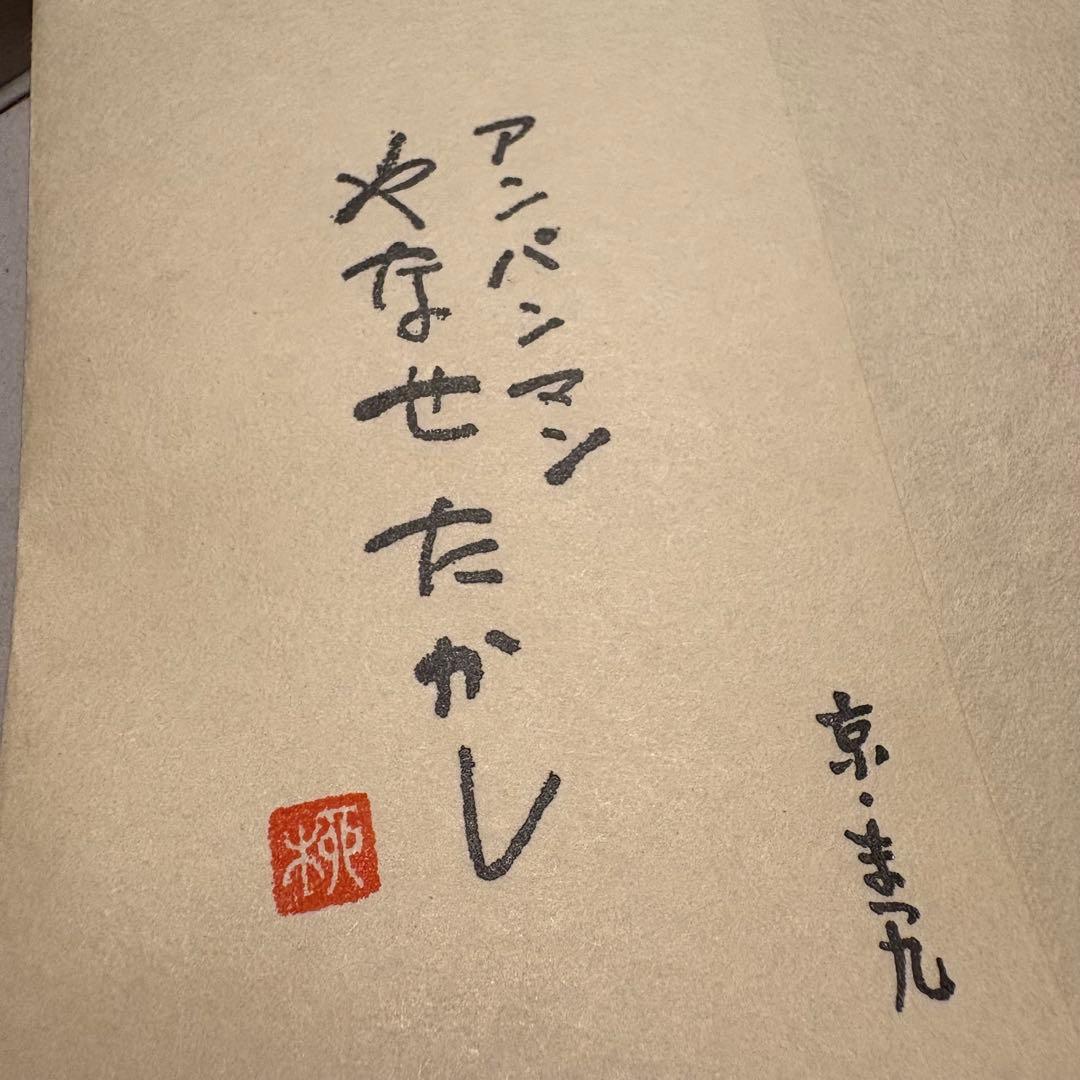 京・まつ九
アンパンマン
やなせたかし
柳